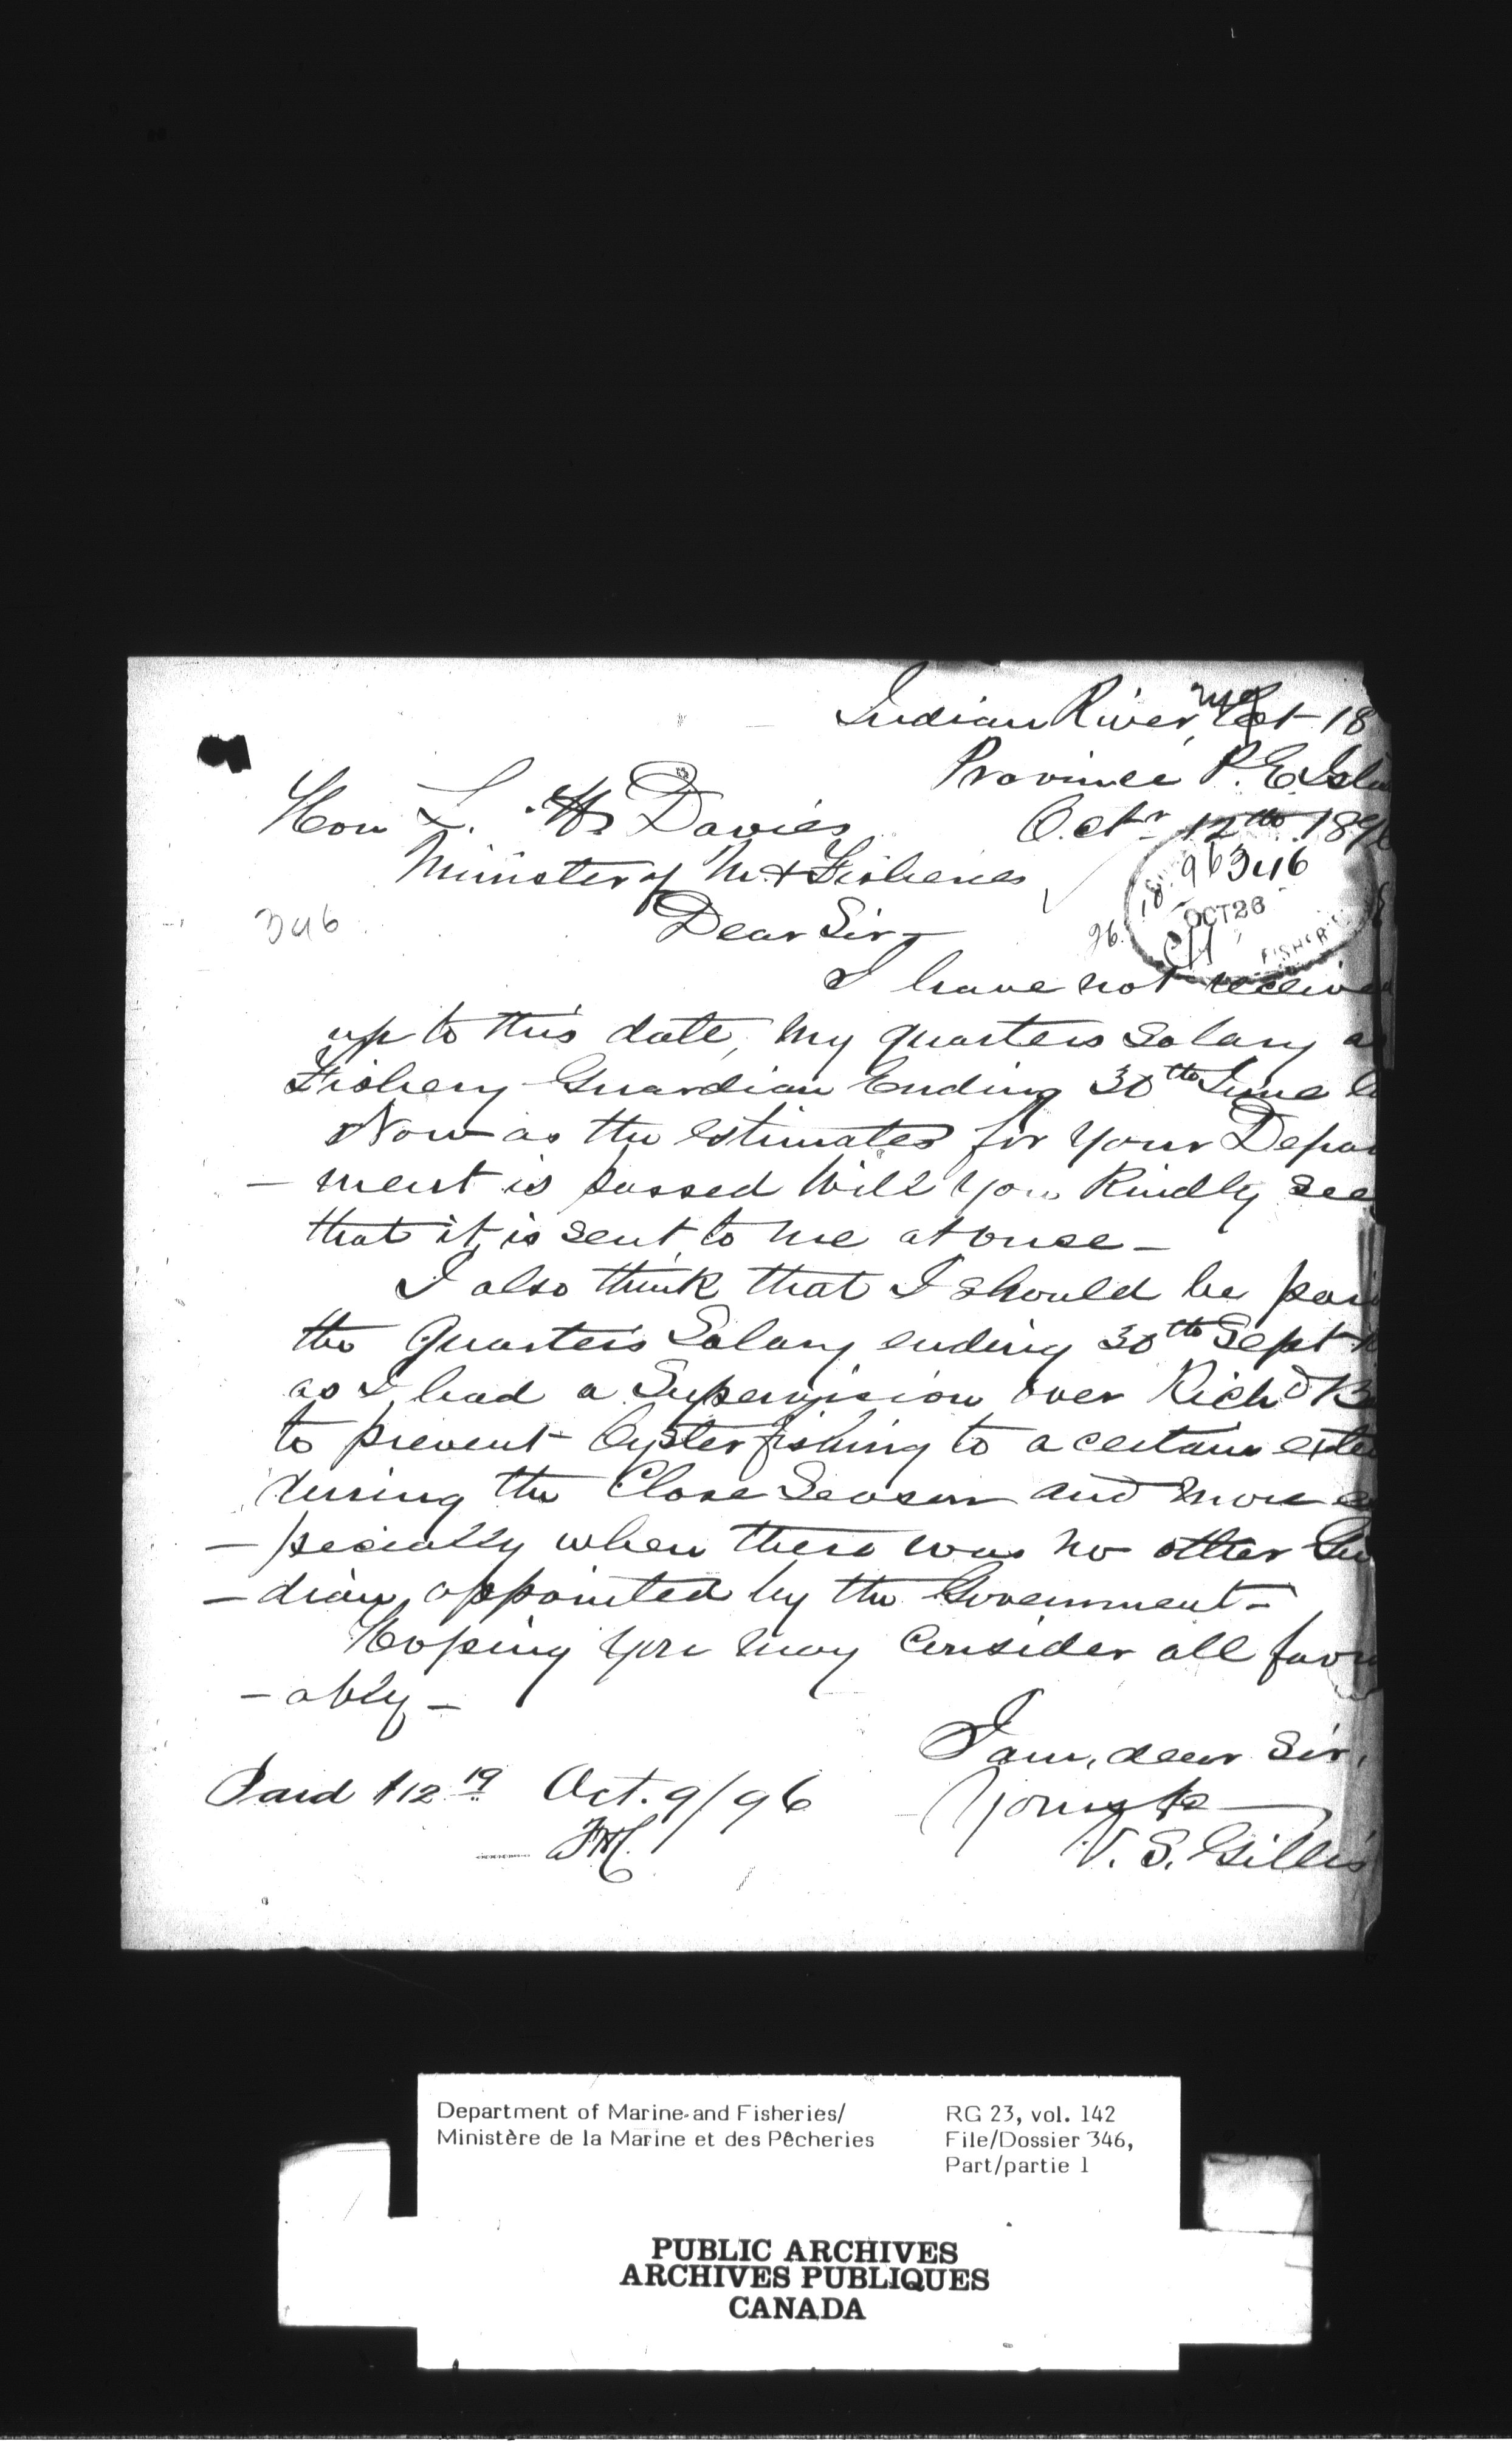 Indian River, Lot 18
Province P. E. Isla
Hon L. H. Davies Octr 12th 1896
Minister of M & Fisheries
96346
OCT 26
FISHER
96.
346
Dear Sir,
I have not receive
up to this date, my quarters Salary as
Fishery Guardian Ending 30th June
Now as the estimates for Your Depar
- ment is passed Will You Kindly see
that it is sent to me at once -
I also think that I should be pai
the Quarters Salary ending 30th Sept
as I had a Supervision over Richd B
to prevent Oyster fishing to a certain exte
during the Close Season and more es
- pecially when there was no other Gu
- dian, appointed by the Government -
Hoping you may Consider all favo
- ably -
I am, dear Sir,
Yours &c
V. S. Gillis
Paid $12 19 Oct. 9/96
Department of Marine and Fisheries/
Ministère de la Marine et des Pêcheries
RG 23, vol. 142
File/Dossier 346,
Part/partie 1
PUBLIC ARCHIVES
ARCHIVES PUBLIQUES
CANADA